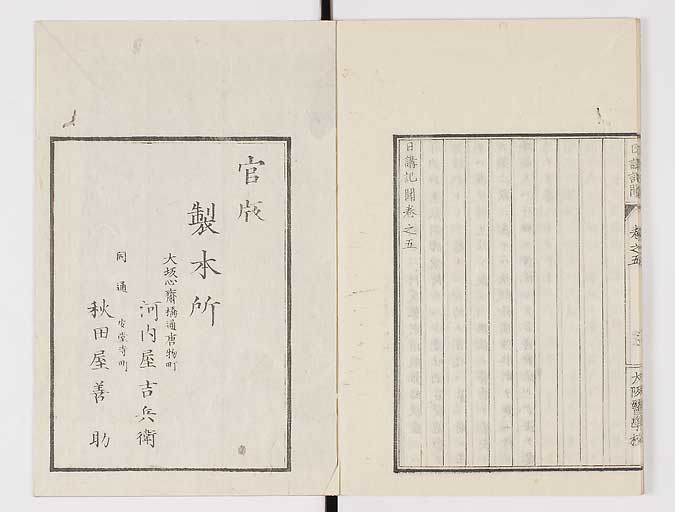 日講記聞
卷之五
大阪醫學校
日講記聞卷之五
官版
製本所
大坂心齋橋通唐物町
河内屋吉兵衛
同通安堂寺町
秋田屋善助